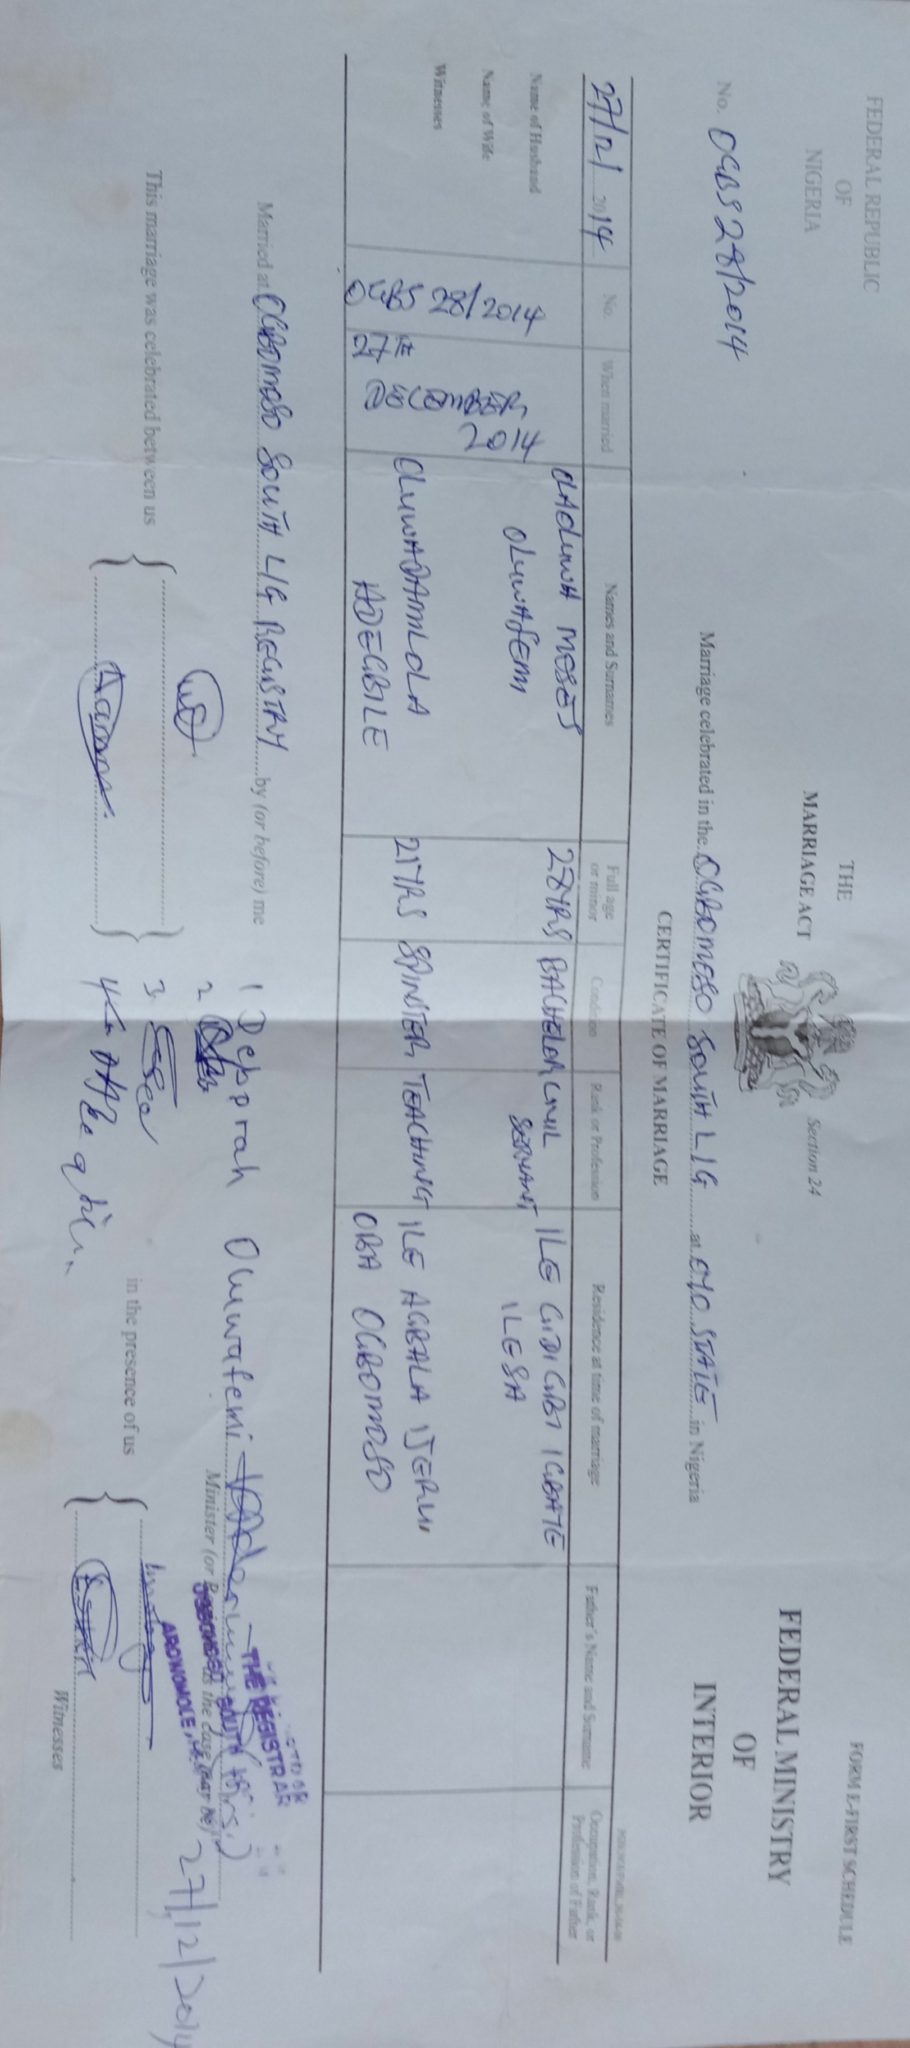 FEDERAL REPUBLIC
OF
NIGERIA
THE
MARRIAGE ACT
Section 24
FORM E-FIRST SCHEDULE
FEDERAL MINISTRY
OF
INTERIOR
No. OGBS 28/2014
Marriage celebrated in the OGBOMOSO SOUTH L/G at OYO STATE in Nigeria
CERTIFICATE OF MARRIAGE
27/12/ 2014
No.
When married
Names and Surnames
Full age or minor
Condition
Rank or Profession
Residence at time of marriage
Father's Name and Surname
Occupation, Rank, or Profession of Father
Name of Husband
OLAOLUWA MOSES
OLUWAFEMI
28YRS
BACHELOR
CIVIL
SERVANT
ILE GIDIGBI IGBAYE
ILESA
OGBS 28/2014
27TH
DECEMBER,
2014
Name of Wife
OLUWADAMILOLA
ADEGBILE
21YRS
SPINSTER
TEACHING
ILE AGBALA IJERU,
OBA OGBOMOSO
Witnesses
Married at OGBOMOSO SOUTH L/G REGISTRY by (or before) me
1 Depprah Oluwafemi
2
3
4
Minister (or Registrar as the case may be)
THE REGISTRAR
OGBOMOSO SOUTH
AROWOMOLE
27/12/2014
This marriage was celebrated between us
in the presence of us
Witnesses